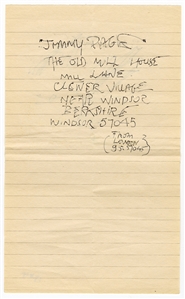 "JIMMY PAGE"
THE OLD MILL HOUSE
MILL LANE
CLEWER VILLAGE
NEAR WINDSOR
BERKSHIRE
WINDSOR 57045
(FROM
LONDON
95-57045)